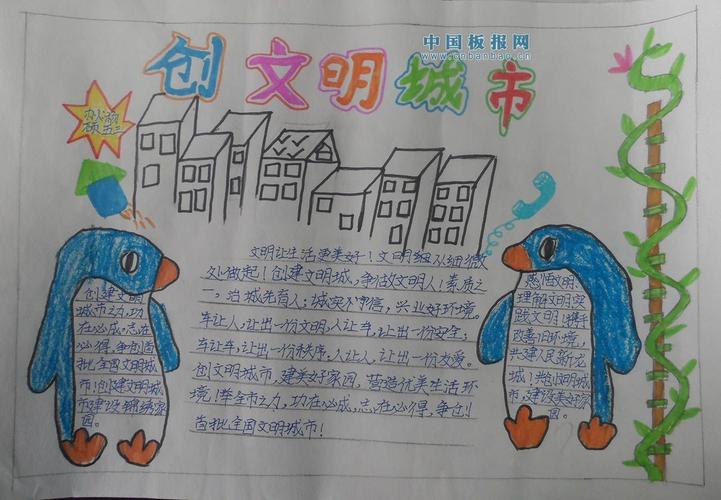 中国板报网
www.cnbanbao.cn
创文明城市
文明让生活更美好！文明细从细微
处做起！创建文明城，争做文明人！素质之
一，治城先育人；诚实不守信，兴业好环境。
车让人，让出一份文明，人让车，让出一份安全；
车让车，让出一份秩序，人让人，让出一份友爱。
创文明城市，建美好家园，营造优美生活环
境！举全市之力，功在必成，志在必得，争创
首批全国文明城市！
创建文明
城市之力，功
在必成，志在
必得，争创首
批全国文明城
市！创建文明城
市建设锦绣家
园。
感悟文明，
理解文明实
做文明！携手
改善旧环境，
共建人民新龙
城！共创文明城
市，建设美好家
园。